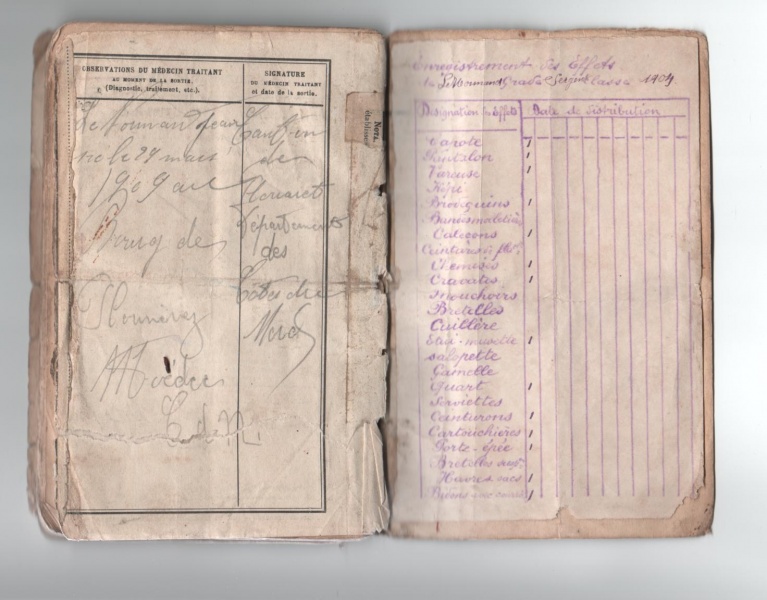 OBSERVATIONS DU MÉDECIN TRAITANT
AU MOMENT DE LA SORTIE.
(Diagnostic, traitement, etc.)
SIGNATURE
DU MÉDECIN TRAITANT
et date de la sortie.
Le Normand
né le 29 mars
1909 au
Bourg de
Canton
de
Département
des
Côtes du
Nord
C d N.
Enregistrement des Effets
Le Normand Grade Sergent Classe 1909
Désignation des effets
Date de Distribution
Capote
Pantalon
Vareuse
Képi
Brodequins
Bandes molletières
Caleçons
Ceintures fl.
Chemises
Cravates
Mouchoirs
Bretelles
Cuillère
Etui-musette
Salopette
Gamelle
Quart
Serviettes
Ceinturons
Cartouchières
Porte-épée
Bretelles
Havre-sacs